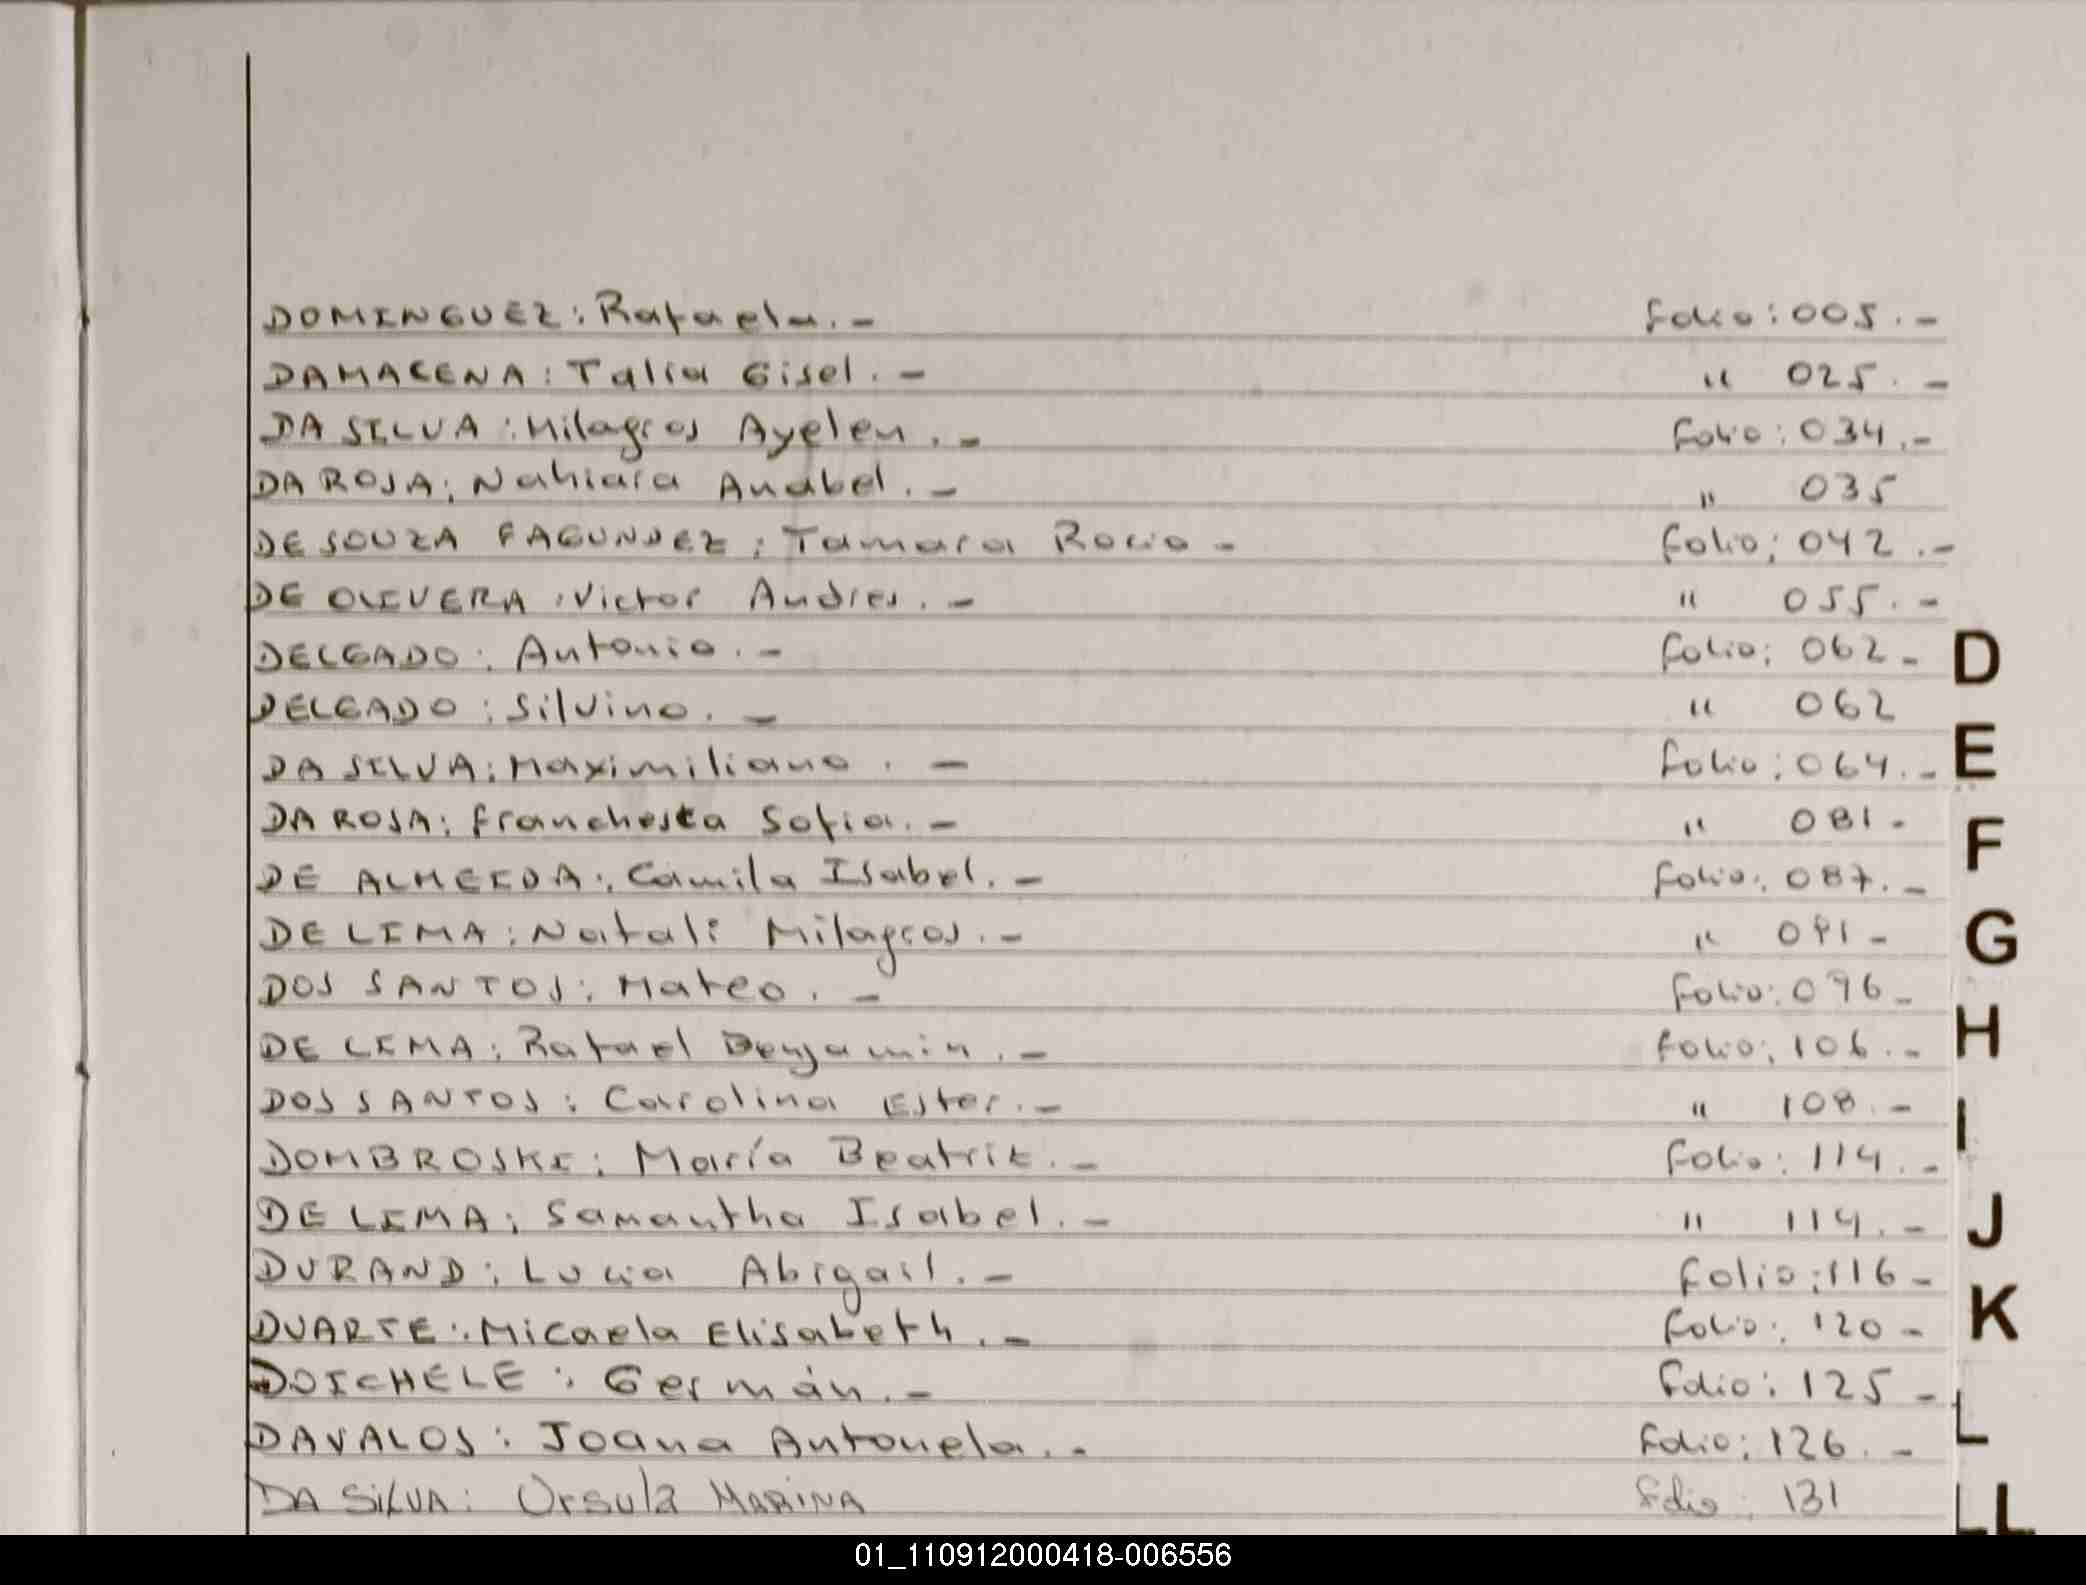 DOMINGUEZ: Rafaela.- Folio: 005.-
DAMACENA: Talia Gisel.- " 025.-
DA SILVA: Milagros Ayelen.- Folio: 034.-
DA ROSA: Nahiara Anabel.- " 035
DE SOUZA FAGUNDEZ: Tamara Rocio - Folio: 042.-
DE OLIVERA: Victor Andres.- " 055.-
DELGADO: Antonio.- Folio: 062-
DELGADO: Silvino.- " 062
DA SILVA: Maximiliano.- Folio: 064.-
DA ROSA: Franchesca Sofia.- " 081-
DE ALMEIDA: Camila Isabel.- Folio: 087.-
DE LIMA: Natali Milagros.- " 091-
DOS SANTOS: Mateo.- Folio: 096-
DE LIMA: Rafael Benjamin.- Folio: 106.-
DOS SANTOS: Carolina Ester.- " 108.-
DOMBROSKI: María Beatriz.- Folio: 114.-
DE LIMA: Samantha Isabel.- " 114.-
DURAND: Lucia Abigail.- Folio: 116-
DUARTE: Micaela Elisabeth.- Folio: 120-
DOICHELE: Germán.- Folio: 125-
DAVALOS: Joana Antonela.- Folio: 126.-
DA SiLVA: Ursula MARINA Folio: 131
D
E
F
G
H
I
J
K
L
LL
01_110912000418-006556